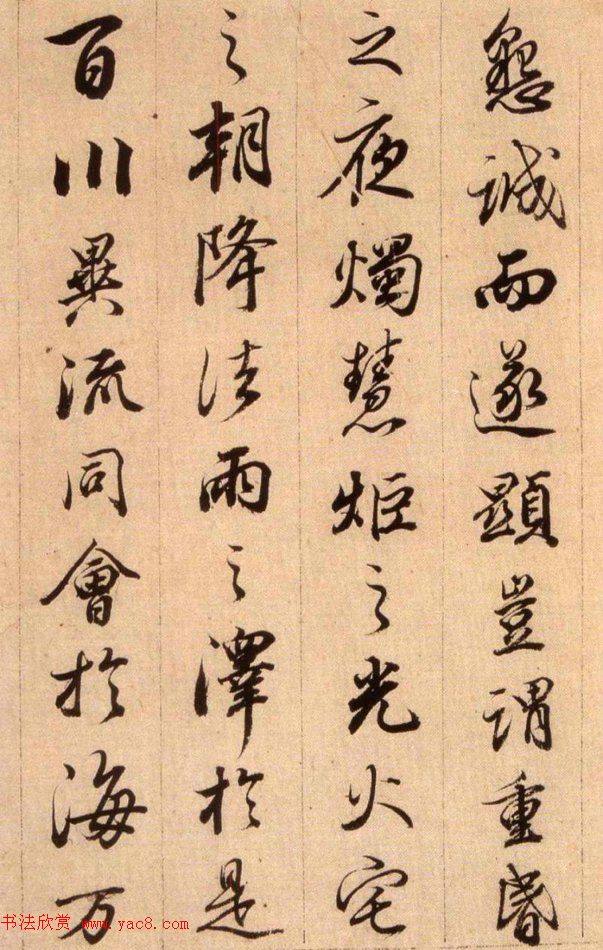 懇誠而遂顯豈謂重昏
之夜燭慧炬之光火宅
之朝降法雨之澤於是
百川異流同會於海万
书法欣赏 www.yac8.com